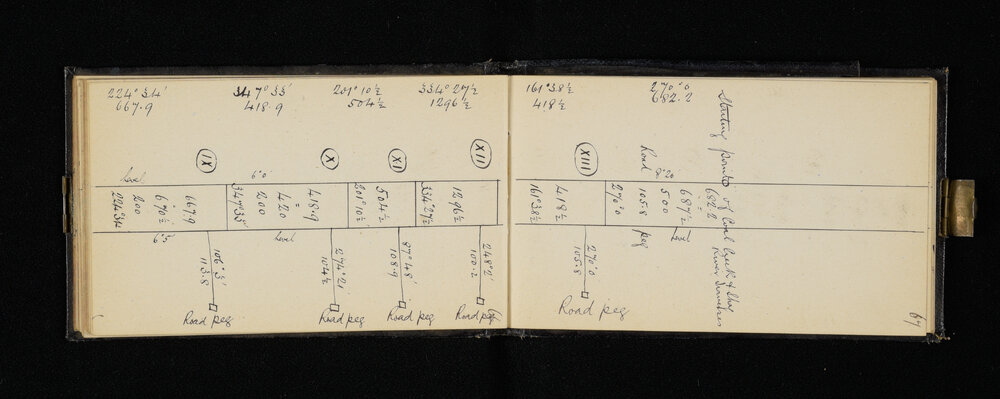 224° 34'
667.9
347° 33'
418.9
201° 10½
504½
334° 27½
1296½
161° 38½
418½
270° 0
682.2
IX
X
XI
XII
XIII
Level
6°.0
224° 34
200
670½
667.9
347° 33'
200
420
418.9
201° 10½
505½
334° 27½
1296½
6°.5
Level
106° 3'
113.8
274° 2'
104½
87° 48'
108.9
248° 2'
100.2
Road peg
Road peg
Road peg
Road peg
161° 38½
418½
270° 0
105.8
500
687½
682.2
Road peg
8°.20
Level
Starting point of Coal Creek &
River Traverses
270° 0
105.8
Road peg
67